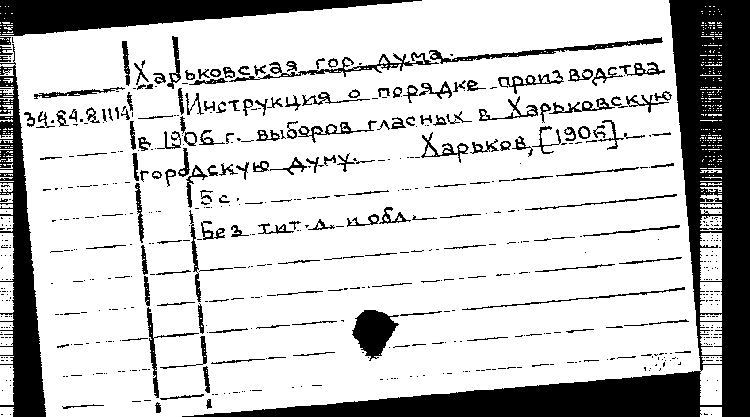 Харьковская гор. дума.
34.84.8.1114 Инструкция о порядке производства
в 1906 г. выборов гласных в Харьковскую
городскую думу. Харьков, [1906].
5 с.
Без тит. л. и обл.